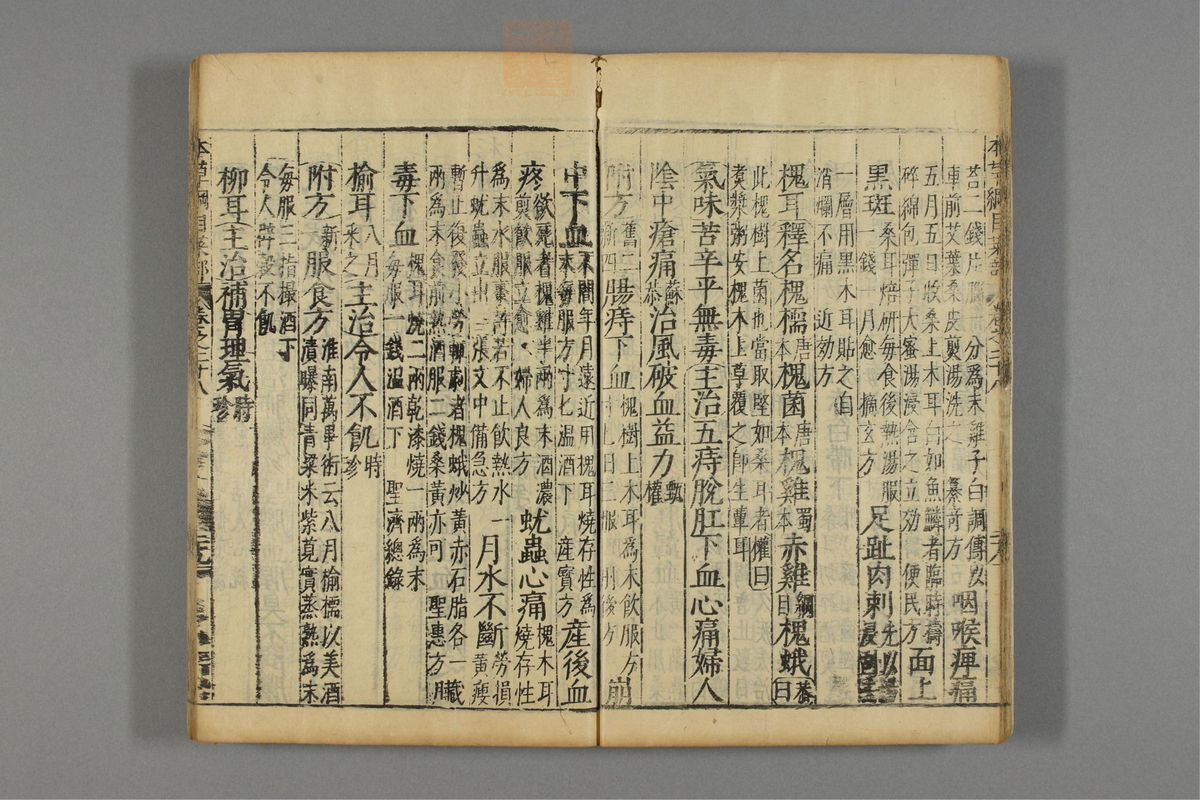 苔二錢片腦一分爲末雞子白調傅
車前艾葉桑皮煎湯洗之纂奇方咽喉痺痛
五月五日收桑上木耳白如魚鱗者臨時擣
碎綿包彈子大蜜湯浸含之立効便民方面上
黑斑桑耳焙研每食後熱湯服
一錢一月愈摘玄方足趾肉刺先以
一層用黑木耳貼之自
消爛不痛近効方
槐耳釋名槐檽唐本槐菌唐本槐雞蜀本赤雞綱目槐蛾
此槐樹上菌也當取堅如桑耳者權曰
煮漿粥安槐木上草覆之即生蕈耳
氣味苦辛平無毒主治五痔脫肛下血心痛婦人
陰中瘡痛蘇恭治風破血益力甄權
附方舊二新四腸痔下血槐樹上木耳爲末飲服方
崩
中下血不問年月遠近用槐耳燒存性爲
末每服方寸匕温酒下産寳方産後血
疼欲死者槐雞半兩爲末酒濃
煎飲服立愈婦人良方蚘蟲心痛槐木耳燒存性
爲末水服棗許若不止飲熱水一
升蚘蟲立出張文仲備急方月水不斷勞損黄瘦
暫止後發小勞輒劇者槐蛾炒黄赤石脂各一
兩爲末食前熱酒服二錢桑黄亦可聖惠方
毒下血槐耳燒二兩乾漆燒一兩爲末
每服一錢温酒下聖濟總錄
榆耳八月采之主治令人不飢時珍
附方新一服食方淮南萬畢術云八月榆檽以美酒
漬曝同青粱米紫莧實蒸熟爲末
每服三指撮酒下
令人辟穀不飢
柳耳主治補胃理氣時珍